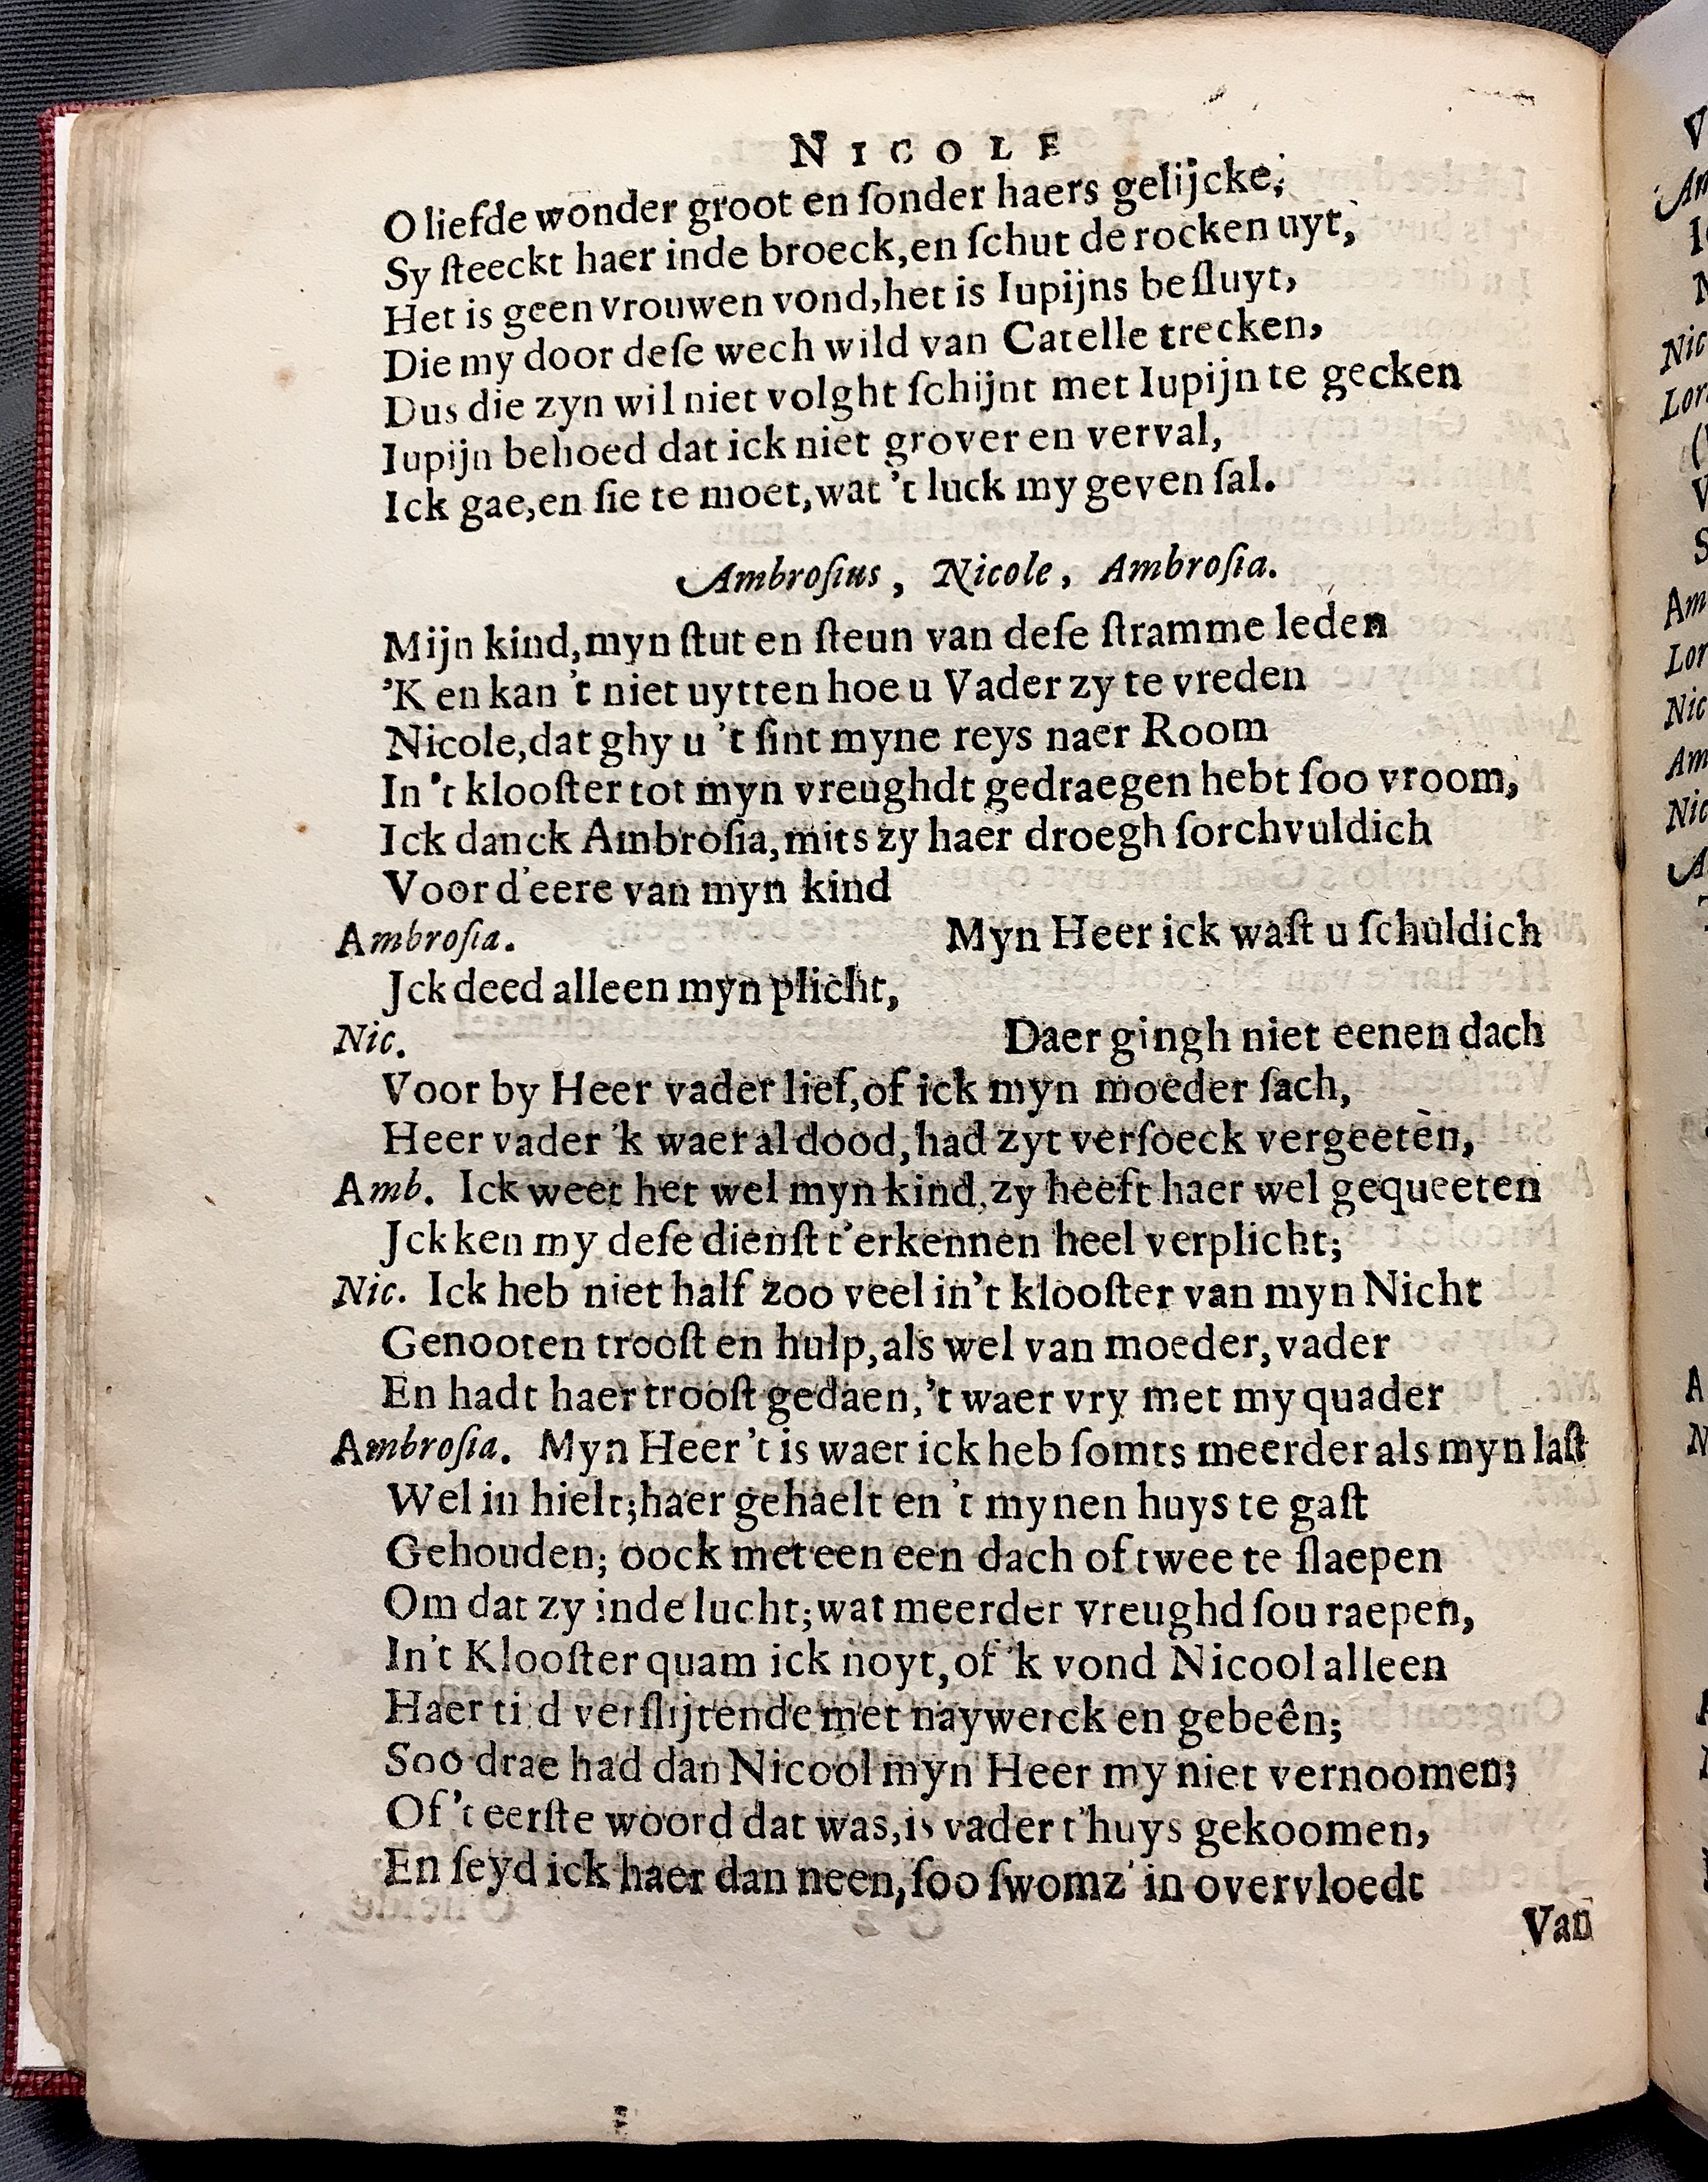 NICOLE
O liefde wonder groot en ſonder haers gelijcke;
Sy ſteeckt haer inde broeck, en ſchut de rocken uyt,
Het is geen vrouwen vond, het is Iupijns beſluyt,
Die my door deſe wech wild van Catelle trecken,
Dus die zyn wil niet volght ſchijnt met Iupijn te gecken
Iupijn behoed dat ick niet grover en verval,
Ick gae, en ſie te moet, wat 't luck my geven ſal.
Ambroſius, Nicole, Ambroſia.
Mijn kind, myn ſtut en ſteun van deſe ſtramme leden
'K en kan 't niet uytten hoe u Vader zy te vreden
Nicole, dat ghy u 't ſint myne reys naer Room
In 't klooſter tot myn vreughdt gedraegen hebt ſoo vroom,
Ick danck Ambroſia, mits zy haer droegh ſorchvuldich
Voor d'eere van myn kind
Ambroſia. Myn Heer ick waſt u ſchuldich
Jck deed alleen myn plicht,
Nic. Daer gingh niet eenen dach
Voor by Heer vader lief, of ick myn moeder ſach,
Heer vader 'k waer al dood, had zyt verſoeck vergeetèn,
Amb. Ick weet het wel myn kind, zy heeft haer wel gequeeten
Jck ken my deſe dienſt t'erkennen heel verplicht;
Nic. Ick heb niet half zoo veel in't klooſter van myn Nicht
Genooten trooſt en hulp, als wel van moeder, vader
En hadt haer trooſt gedaen, 't waer vry met my quader
Ambroſia. Myn Heer 't is waer ick heb ſomts meerder als myn laſt
Wel in hielt; haer gehaelt en 't mynen huys te gaſt
Gehouden; oock met een een dach of twee te ſlaepen
Om dat zy inde lucht; wat meerder vreughd ſou raepen,
In't Klooſter quam ick noyt, of 'k vond Nicool alleen
Haer ti d verſlijtende met naywerck en gebeên;
Soo drae had dan Nicool myn Heer my niet vernoomen;
Of 't eerſte woord dat was, is vader t'huys gekoomen,
En ſeyd ick haer dan neen, ſoo ſwomz' in overvloedt
Van